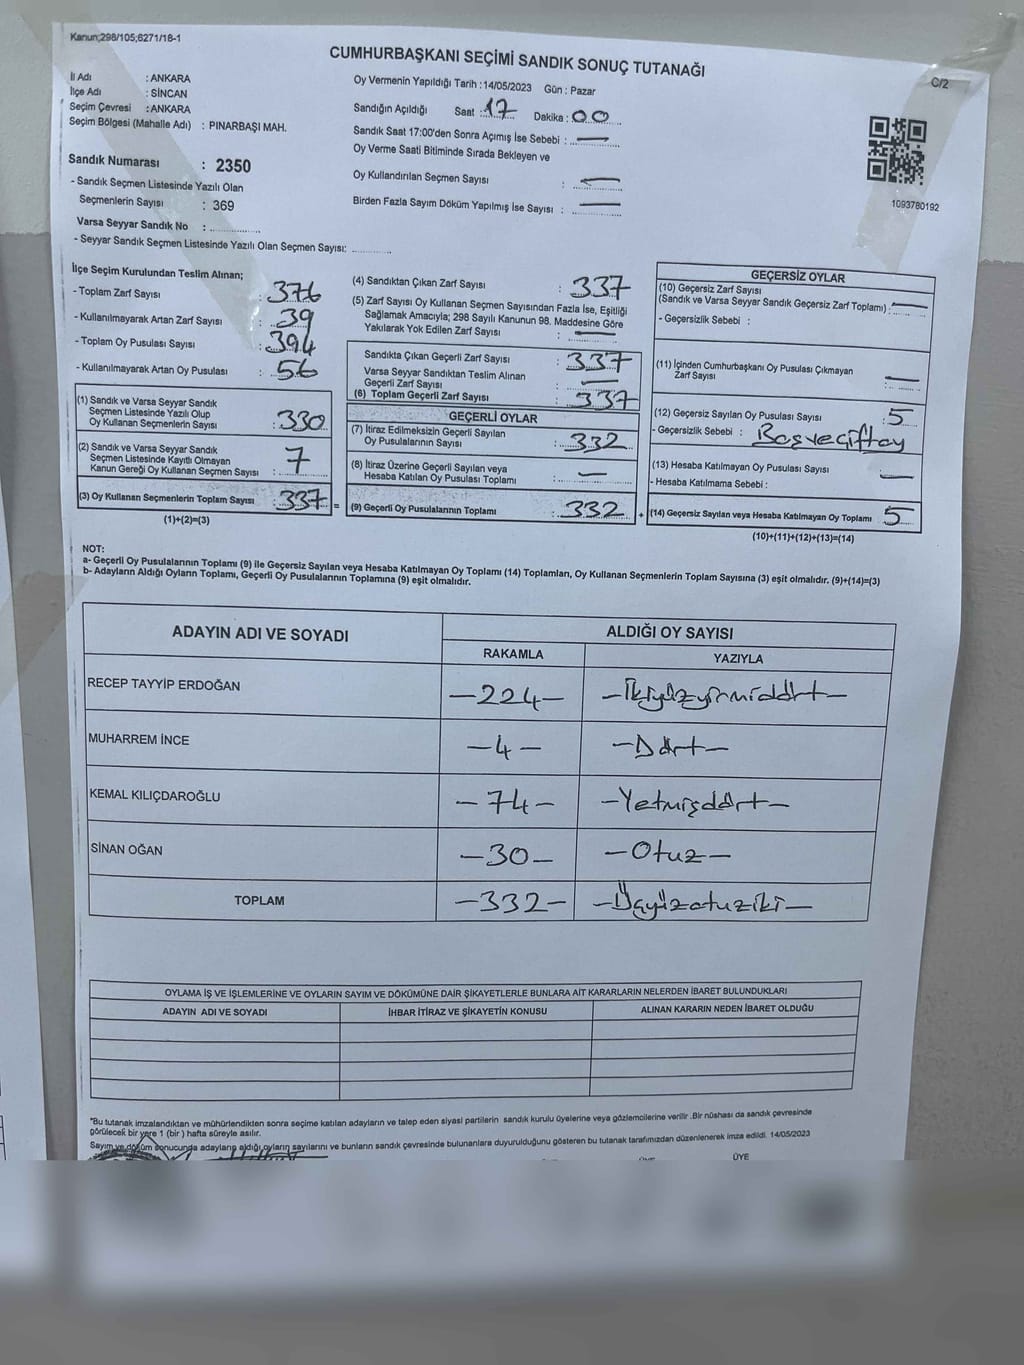 Kanun;298/105;6271/18-1
CUMHURBAŞKANI SEÇİMİ SANDIK SONUÇ TUTANAĞI
C/2
İl Adı : ANKARA
İlçe Adı : SİNCAN
Seçim Çevresi : ANKARA
Seçim Bölgesi (Mahalle Adı) : PINARBAŞI MAH.
Sandık Numarası : 2350
- Sandık Seçmen Listesinde Yazılı Olan
Seçmenlerin Sayısı : 369
Varsa Seyyar Sandık No :
- Seyyar Sandık Seçmen Listesinde Yazılı Olan Seçmen Sayısı:
Oy Vermenin Yapıldığı Tarih : 14/05/2023 Gün : Pazar
Sandığın Açıldığı Saat : 17 Dakika : 00
Sandık Saat 17:00'den Sonra Açımış İse Sebebi : —
Oy Verme Saati Bitiminde Sırada Bekleyen ve
Oy Kullandırılan Seçmen Sayısı : —
Birden Fazla Sayım Döküm Yapılmış İse Sayısı : —
1093780192
İlçe Seçim Kurulundan Teslim Alınan;
- Toplam Zarf Sayısı : 376
- Kullanılmayarak Artan Zarf Sayısı : 39
- Toplam Oy Pusulası Sayısı : 394
- Kullanılmayarak Artan Oy Pusulası : 56
(1) Sandık ve Varsa Seyyar Sandık
Seçmen Listesinde Yazılı Olup
Oy Kullanan Seçmenlerin Sayısı : 330
(2) Sandık ve Varsa Seyyar Sandık
Seçmen Listesinde Kayıtlı Olmayan
Kanun Gereği Oy Kullanan Seçmen Sayısı : 7
(3) Oy Kullanan Seçmenlerin Toplam Sayısı : 337 =
(1)+(2)=(3)
(4) Sandıktan Çıkan Zarf Sayısı : 337
(5) Zarf Sayısı Oy Kullanan Seçmen Sayısından Fazla İse, Eşitliği
Sağlamak Amacıyla; 298 Sayılı Kanunun 98. Maddesine Göre
Yakılarak Yok Edilen Zarf Sayısı : —
Sandıkta Çıkan Geçerli Zarf Sayısı : 337
Varsa Seyyar Sandıktan Teslim Alınan
Geçerli Zarf Sayısı : —
(6) Toplam Geçerli Zarf Sayısı : 337
GEÇERLİ OYLAR
(7) İtiraz Edilmeksizin Geçerli Sayılan
Oy Pusulalarının Sayısı : 332
(8) İtiraz Üzerine Geçerli Sayılan veya
Hesaba Katılan Oy Pusulası Toplamı : —
(9) Geçerli Oy Pusulalarının Toplamı : 332 +
GEÇERSİZ OYLAR
(10) Geçersiz Zarf Sayısı
(Sandık ve Varsa Seyyar Sandık Geçersiz Zarf Toplamı) : —
- Geçersizlik Sebebi :
(11) İçinden Cumhurbaşkanı Oy Pusulası Çıkmayan
Zarf Sayısı : —
(12) Geçersiz Sayılan Oy Pusulası Sayısı : 5
- Geçersizlik Sebebi :
(13) Hesaba Katılmayan Oy Pusulası Sayısı : —
- Hesaba Katılmama Sebebi :
(14) Geçersiz Sayılan veya Hesaba Katılmayan Oy Toplamı 5
(10)+(11)+(12)+(13)=(14)
NOT:
a- Geçerli Oy Pusulalarının Toplamı (9) ile Geçersiz Sayılan veya Hesaba Katılmayan Oy Toplamı (14) Toplamları, Oy Kullanan Seçmenlerin Toplam Sayısına (3) eşit olmalıdır. (9)+(14)=(3)
b- Adayların Aldığı Oyların Toplamı, Geçerli Oy Pusulalarının Toplamına (9) eşit olmalıdır.
ADAYIN ADI VE SOYADI ALDIĞI OY SAYISI
RAKAMLA YAZIYLA
RECEP TAYYİP ERDOĞAN —224— —İkiyüzyirmidört—
MUHARREM İNCE —4— —Dört—
KEMAL KILIÇDAROĞLU —74— —Yetmişdört—
SİNAN OĞAN —30— —Otuz—
TOPLAM —332— —Üçyüzotuziki—
OYLAMA İŞ VE İŞLEMLERİNE VE OYLARIN SAYIM VE DÖKÜMÜNE DAİR ŞİKAYETLERLE BUNLARA AİT KARARLARIN NELERDEN İBARET BULUNDUKLARI
ADAYIN ADI VE SOYADI İHBAR İTİRAZ VE ŞİKAYETİN KONUSU ALINAN KARARIN NEDEN İBARET OLDUĞU
"Bu tutanak imzalandıktan ve mühürlendikten sonra seçime katılan adayların ve talep eden siyasi partilerin sandık kurulu üyelerine veya gözlemcilerine verilir .Bir nüshası da sandık çevresinde
görülecek bir yere 1 (bir ) hafta süreyle asılır.
Sayım ve döküm sonucunda adayların aldığı oyların sayılarını ve bunların sandık çevresinde bulunanlara duyurulduğunu gösteren bu tutanak tarafımızdan düzenlenerek imza edildi. 14/05/2023
ÜYE